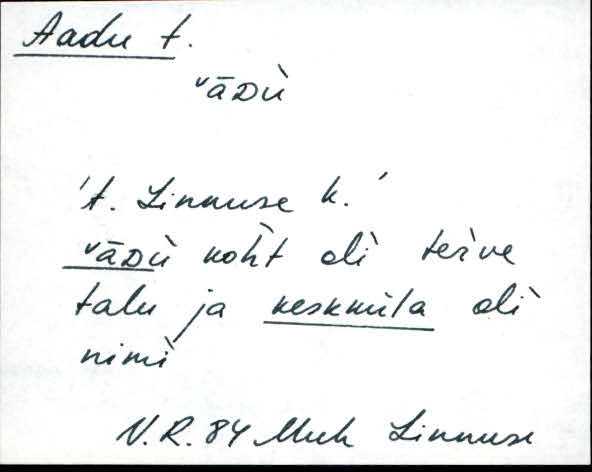 Aadu t.
ˇāDù
't. Linnuse k.'
ˇāDù koht oli terve
talu ja keskmila oli
nimi
N.R. 84 Muh Linnuse